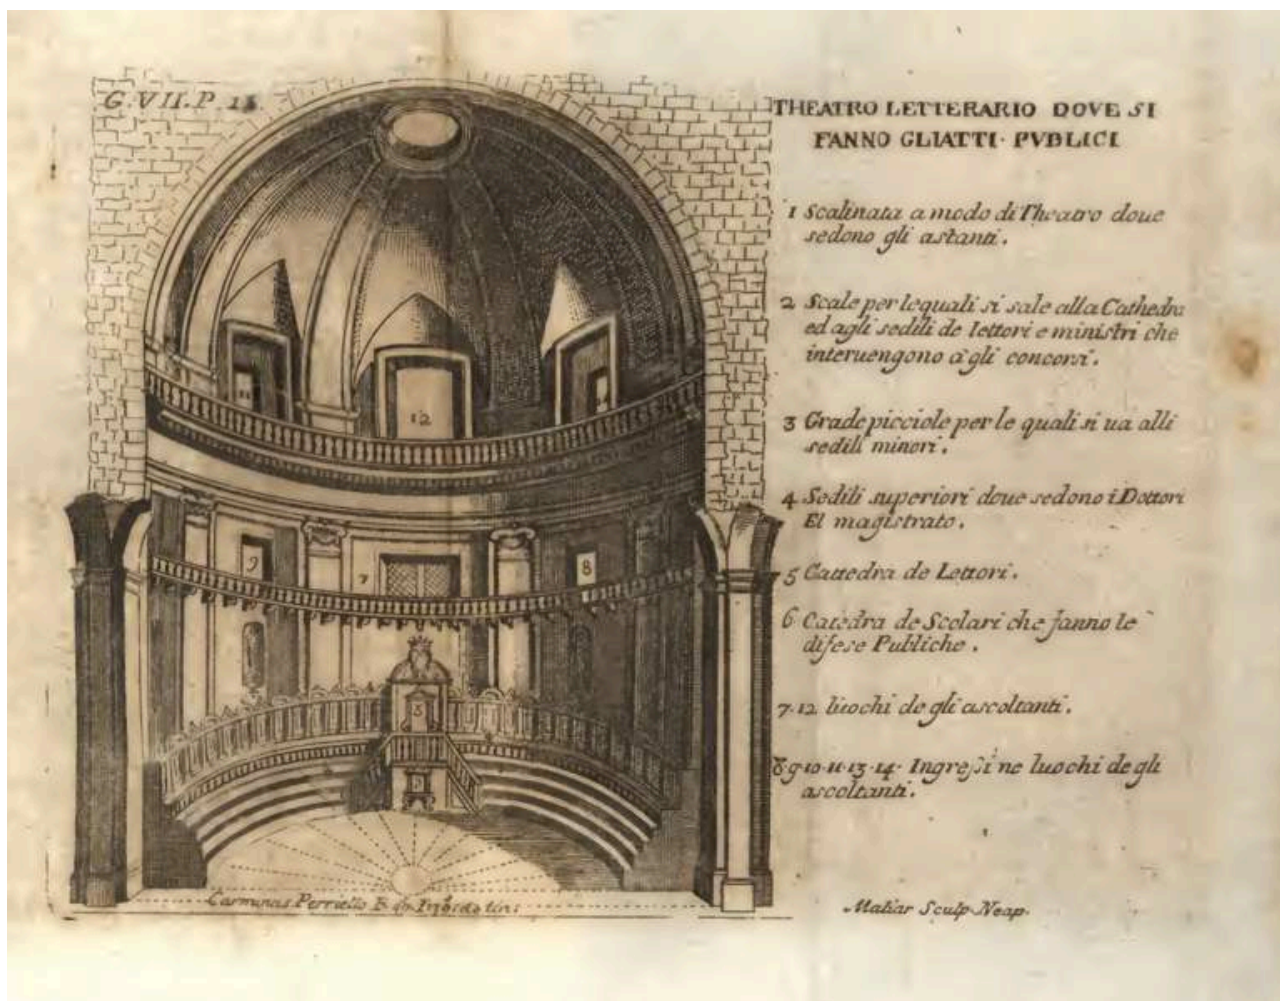 G. VII. P. 11.
THEATRO LETTERARIO DOVE SI
FANNO GLIATTI· PVBLICI
1 Scalinata a modo di Theatro doue
sedono gli astanti.
2 Scale per lequali si sale alla Cathedra
ed agli sedili de lettori e ministri che
interuengono a gli concorsi.
3 Grade picciole per le quali si ua alli
sedili minori.
4 Sedili superiori doue sedono i Dottori
El magistrato.
5 Cattedra de Lettori.
6 Catedra de Scolari che fanno le
difese Publiche.
7·12 luochi de gli ascoltanti.
8·9·10·11·13·14· Ingressi ne luochi de gli
ascoltanti.
12
9
7
8
5
Carminus Perriello
Maliar Sculp. Neap.